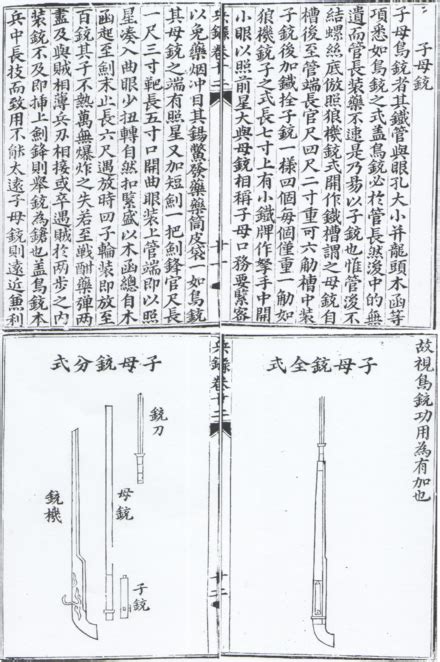 子母銃
子母鳥銃者其鐵管與眼孔大小并龍頭木函等
項悉如鳥銃之式蓋鳥銃必於管長然後中的無
遺而管長裝藥不速是乃易以子銃也惟管後不
結螺絲底倣照狼機銃式開作鐵槽謂之母銃自
槽後至管端長官尺四尺二寸重可六觔槽中裝
子銃後加鐵拴子銃一樣四個每個僅重一觔如
狼機銃子之式長七寸上有小鐵牌作拏手中開
小眼以照前星大與母銃相稱子母口務要緊密
兵錄卷十二
以免藥烟冲目其錫鱉發藥藥筒皮袋一如鳥銃
其母銃之端有照星又加短劍一把劍鋒官尺長
一尺三寸靶長五寸口開曲眼裝上管端即以照
星湊入曲眼少扭轉自然扣緊盛以木函總自木
函起至劍末止長六尺遇放時四子輪裝即放至
百銃其子不熱萬無爆炸之失若至戰酣藥彈兩
盡及與賊相薄兵刃相接或卒遇賊於兩步之內
裝銃不及即插上劍鋒則舉銃為鎗也蓋鳥銃本
兵中長技而致用不能太遠子母銃則遠近兼利
故視鳥銃功用為有加也
子母銃全式
兵錄卷十二
廿二
子母銃分式
銃刀
母銃
子銃
銃機